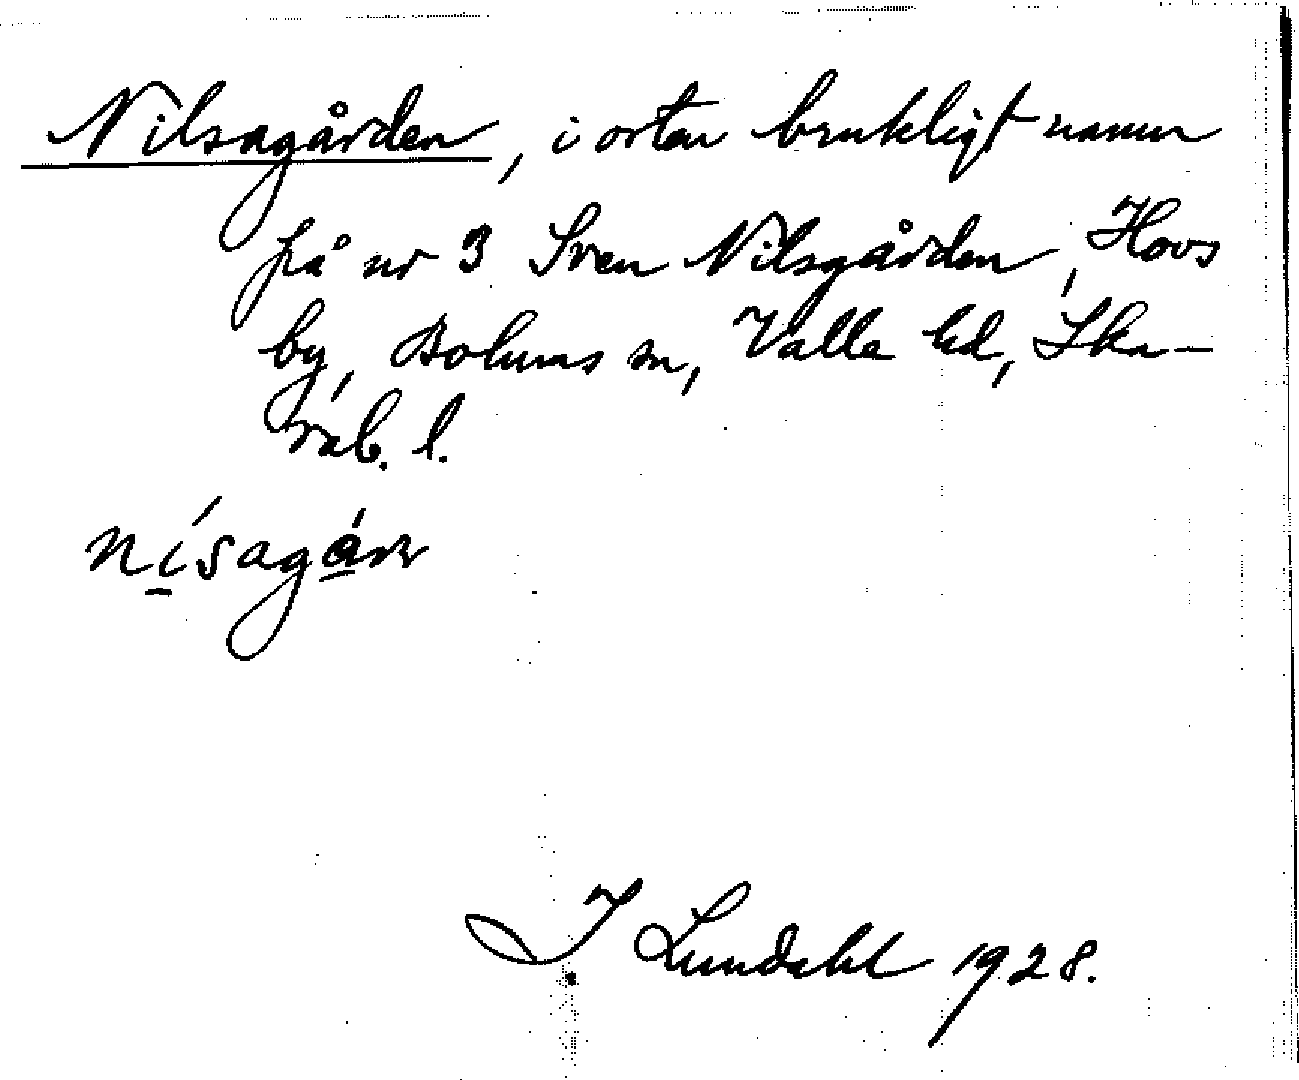 Nilsagården, i orten brukligt namn
på nr 3 Sven Nilsgården, Hovs
by, Bolums sn, Valle hd, Ska-
rab. l.
nísagárn
I Lundahl 1928.